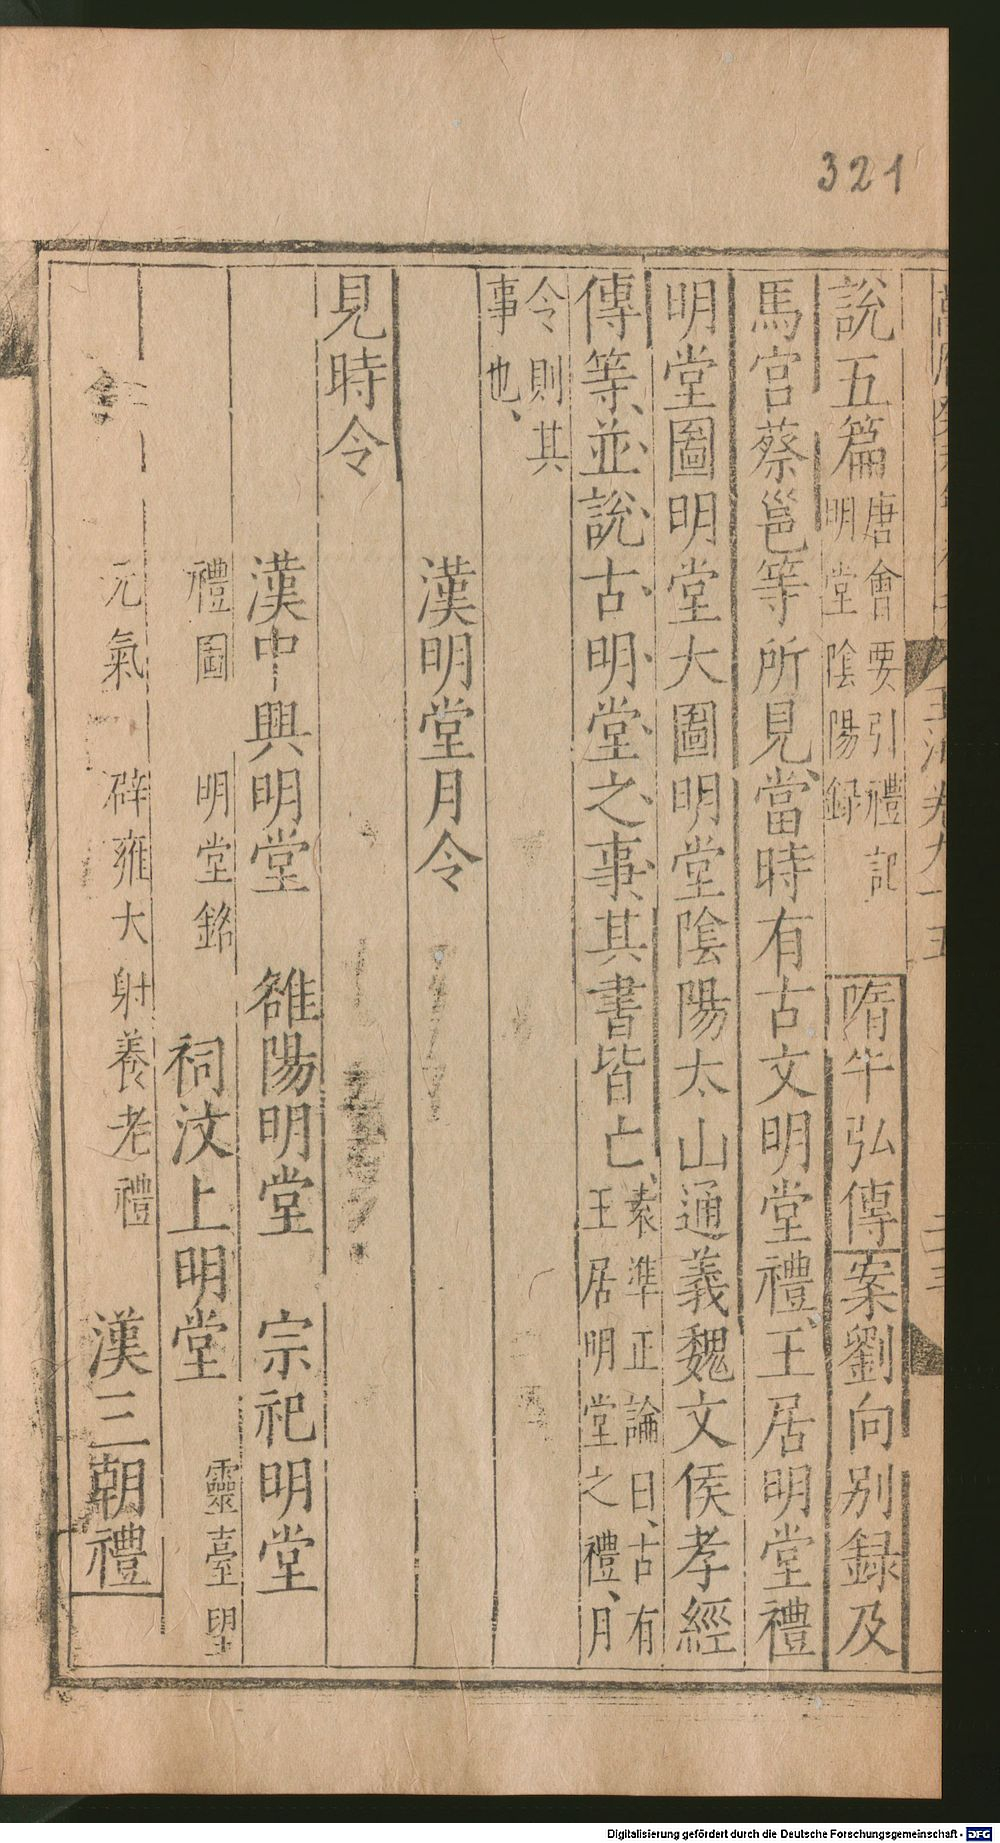 321
玉海卷九十五
說五篇唐會要引禮記明堂陰陽録 隋牛弘傳案劉向別録及
馬宮蔡邕等所見當時有古文明堂禮、王居明堂禮
明堂圖明堂大圖明堂陰陽太山通義魏文侯孝經
傳等、並、說、古、明、堂、之、事、其書皆亡、袁準正論曰、古有王居明堂之禮、月
令則其事也、
漢明堂月令
見時令
漢中興明堂 雒陽明堂 宗祀明堂
禮圖 明堂銘 祠汶上明堂 靈臺
元氣 辟雍大射養老禮 漢三朝禮
Digitalisierung gefördert durch die Deutsche Forschungsgemeinschaft - DFG